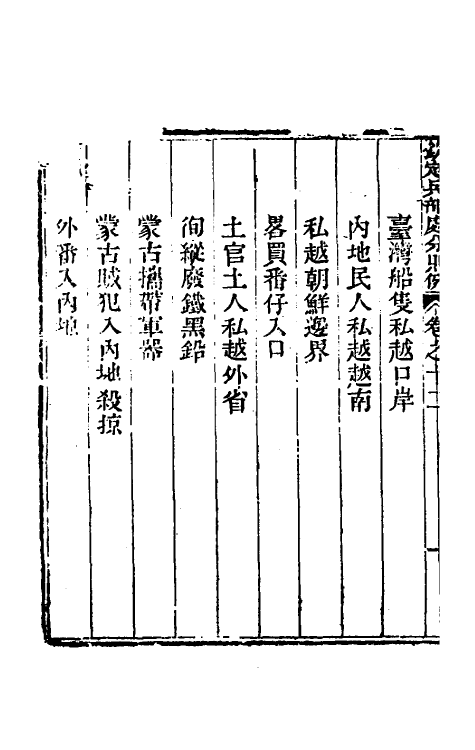 欽定兵部處分則例 卷之十二
臺灣船隻私越口岸
內地民人私越越南
私越朝鮮邊界
畧買番仔入口
土官土人私越外省
徇縱廢鐵黑鉛
蒙古攜帶軍器
蒙古賊犯入內地殺掠
外番入內地